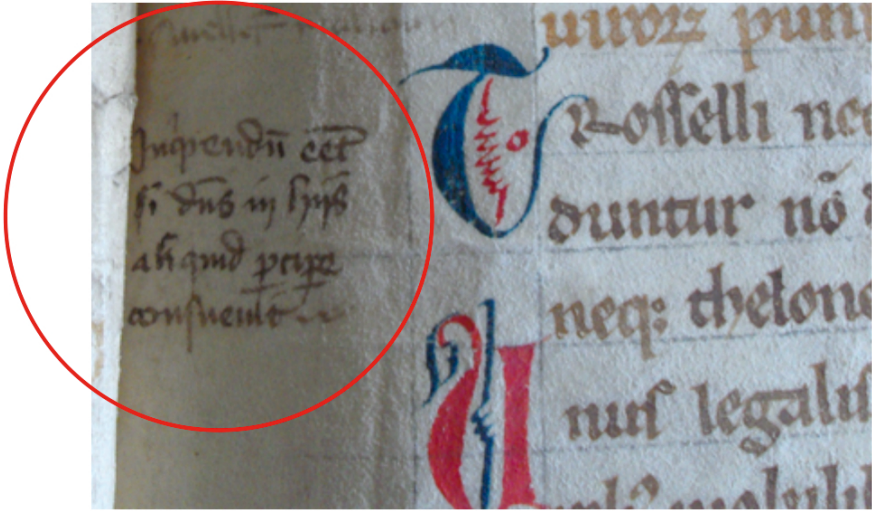 Inq̉rendū eēt
si dn̄s in hijs
aliquid ꝑcipe
consueuit
uiroꝝ puni
Rosselli nec
duntur nō
neq: thelone
nus legalis